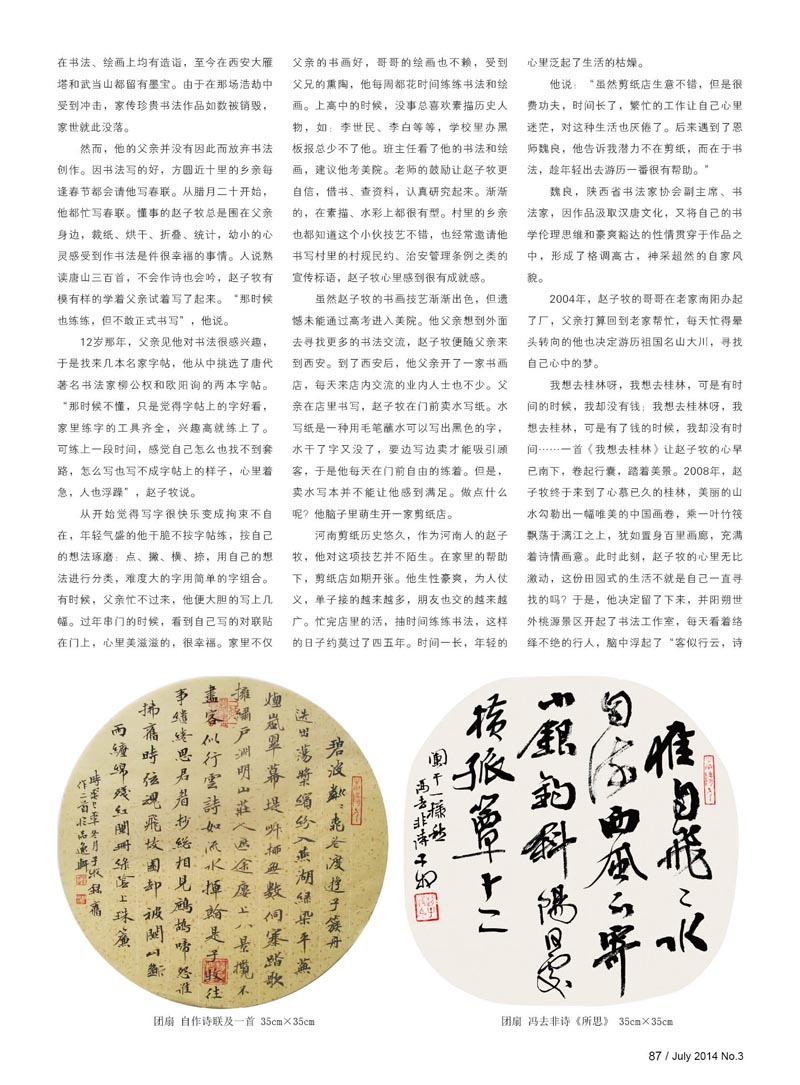 在书法、绘画上均有造诣，至今在西安大雁
塔和武当山都留有墨宝。由于在那场浩劫中
受到冲击，家传珍贵书法作品如数被销毁，
家世就此没落。
然而，他的父亲并没有因此而放弃书法
创作。因书法写的好，方圆近十里的乡亲每
逢春节都会请他写春联。从腊月二十开始，
他都忙写春联。懂事的赵子牧总是围在父亲
身边，裁纸、烘干、折叠、统计，幼小的心
灵感受到作书法是件很幸福的事情。人说熟
读唐山三百首，不会作诗也会吟，赵子牧有
模有样的学着父亲试着写了起来。“那时候
也练练，但不敢正式书写”，他说。
12岁那年，父亲见他对书法很感兴趣，
于是找来几本名家字帖，他从中挑选了唐代
著名书法家柳公权和欧阳询的两本字帖。
“那时候不懂，只是觉得字帖上的字好看，
家里练字的工具齐全，兴趣高就练上了。
可练上一段时间，感觉自己怎么也找不到套
路，怎么写也写不成字帖上的样子，心里着
急，人也浮躁”，赵子牧说。
从开始觉得写字很快乐变成拘束不自
在，年轻气盛的他干脆不按字帖练，按自己
的想法琢磨：点、撇、横、捺，用自己的想
法进行分类，难度大的字用简单的字组合。
有时候，父亲忙不过来，他便大胆的写上几
幅。过年串门的时候，看到自己写的对联贴
在门上，心里美滋滋的，很幸福。家里不仅
父亲的书画好，哥哥的绘画也不赖，受到
父兄的熏陶，他每周都花时间练练书法和绘
画。上高中的时候，没事总喜欢素描历史人
物，如：李世民、李白等等，学校里办黑
板报总少不了他。班主任看了他的书法和绘
画，建议他考美院。老师的鼓励让赵子牧更
自信，借书、查资料，认真研究起来。渐渐
的，在素描、水彩上都很有型。村里的乡亲
也都知道这个小伙技艺不错，也经常邀请他
书写村里的村规民约、治安管理条例之类的
宣传标语，赵子牧心里感到很有成就感。
虽然赵子牧的书画技艺渐渐出色，但遗
憾未能通过高考进入美院。他父亲想到外面
去寻找更多的书法交流，赵子牧便随父亲来
到西安。到了西安后，他父亲开了一家书画
店，每天来店内交流的业内人士也不少。父
亲在店里书写，赵子牧在门前卖水写纸。水
写纸是一种用毛笔蘸水可以写出黑色的字，
水干了字又没了，要边写边卖才能吸引顾
客，于是他每天在门前自由的练着。但是，
卖水写本并不能让他感到满足。做点什么
呢？他脑子里萌生开一家剪纸店。
河南剪纸历史悠久，作为河南人的赵子
牧，他对这项技艺并不陌生。在家里的帮助
下，剪纸店如期开张。他生性豪爽，为人仗
义，单子接的越来越多，朋友也交的越来越
广。忙完店里的活，抽时间练练书法，这样
的日子约莫过了四五年。时间一长，年轻的
心里泛起了生活的枯燥。
他说：“虽然剪纸店生意不错，但是很
费功夫，时间长了，繁忙的工作让自己心里
迷茫，对这种生活也厌倦了。后来遇到了恩
师魏良，他告诉我潜力不在剪纸，而在于书
法，趁年轻出去游历一番很有帮助。”
魏良，陕西省书法家协会副主席、书
法家，因作品汲取汉唐文化，又将自己的书
学伦理思维和豪爽豁达的性情贯穿于作品之
中，形成了格调高古，神采超然的自家风
貌。
2004年，赵子牧的哥哥在老家南阳办起
了厂，父亲打算回到老家帮忙，每天忙得晕
头转向的他也决定游历祖国名山大川，寻找
自己心中的梦。
我想去桂林呀，我想去桂林，可是有时
间的时候，我却没有钱；我想去桂林呀，我
想去桂林，可是有了钱的时候，我却没有时
间……一首《我想去桂林》让赵子牧的心早
已南下，卷起行囊，踏着美景。2008年，赵
子牧终于来到了心慕已久的桂林，美丽的山
水勾勒出一幅唯美的中国画卷，乘一叶竹筏
飘荡于漓江之上，犹如置身百里画廊，充满
着诗情画意。此时此刻，赵子牧的心里无比
激动，这份田园式的生活不就是自己一直寻
找的吗？于是，他决定留了下来，并阳朔世
外桃源景区开起了书法工作室，每天看着络
绎不绝的行人，脑中浮起了“客似行云，诗
惟有飛二水
自流西風不寄
小銀鈎斜陽日處
横孤簟十二
闌干一樣愁
馮去非詩子牧
团扇 自作诗联及一首 35cm×35cm
团扇 冯去非诗《所思》 35cm×35cm
87 / July 2014 No.3